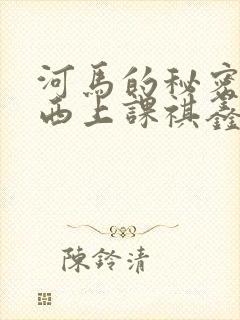 河馬的秘密
西上課祺鑫
陳鈴清